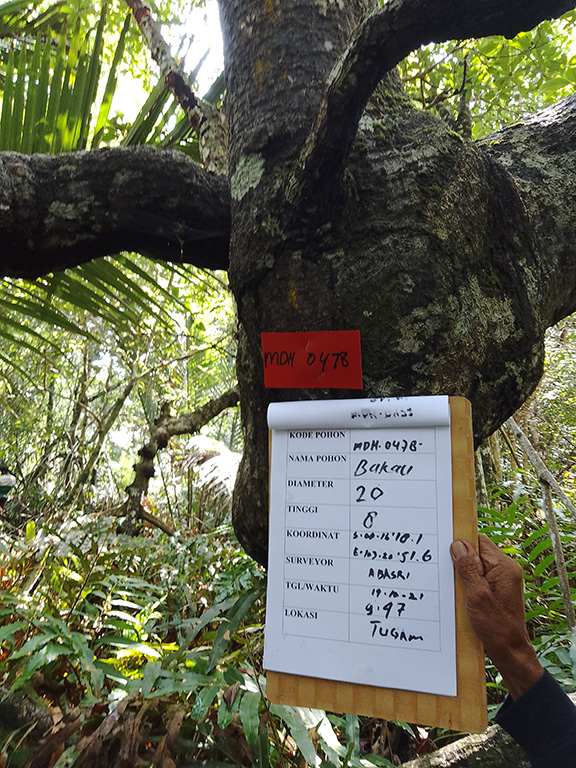 MDH 0478
KODE POHON MDH-0478-
NAMA POHON Bakau
DIAMETER 20
TINGGI 8
KOORDINAT S-00-16'18.1
E-103-20'51.6
SURVEYOR ABASRI
TGL/WAKTU 19-10-21
9.47
LOKASI TUGAM